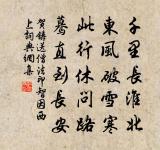 千里長淮北
東風破雪寒
此行休問路
驀直到長安
賀鑄送僧法印智因西
上詞典網集